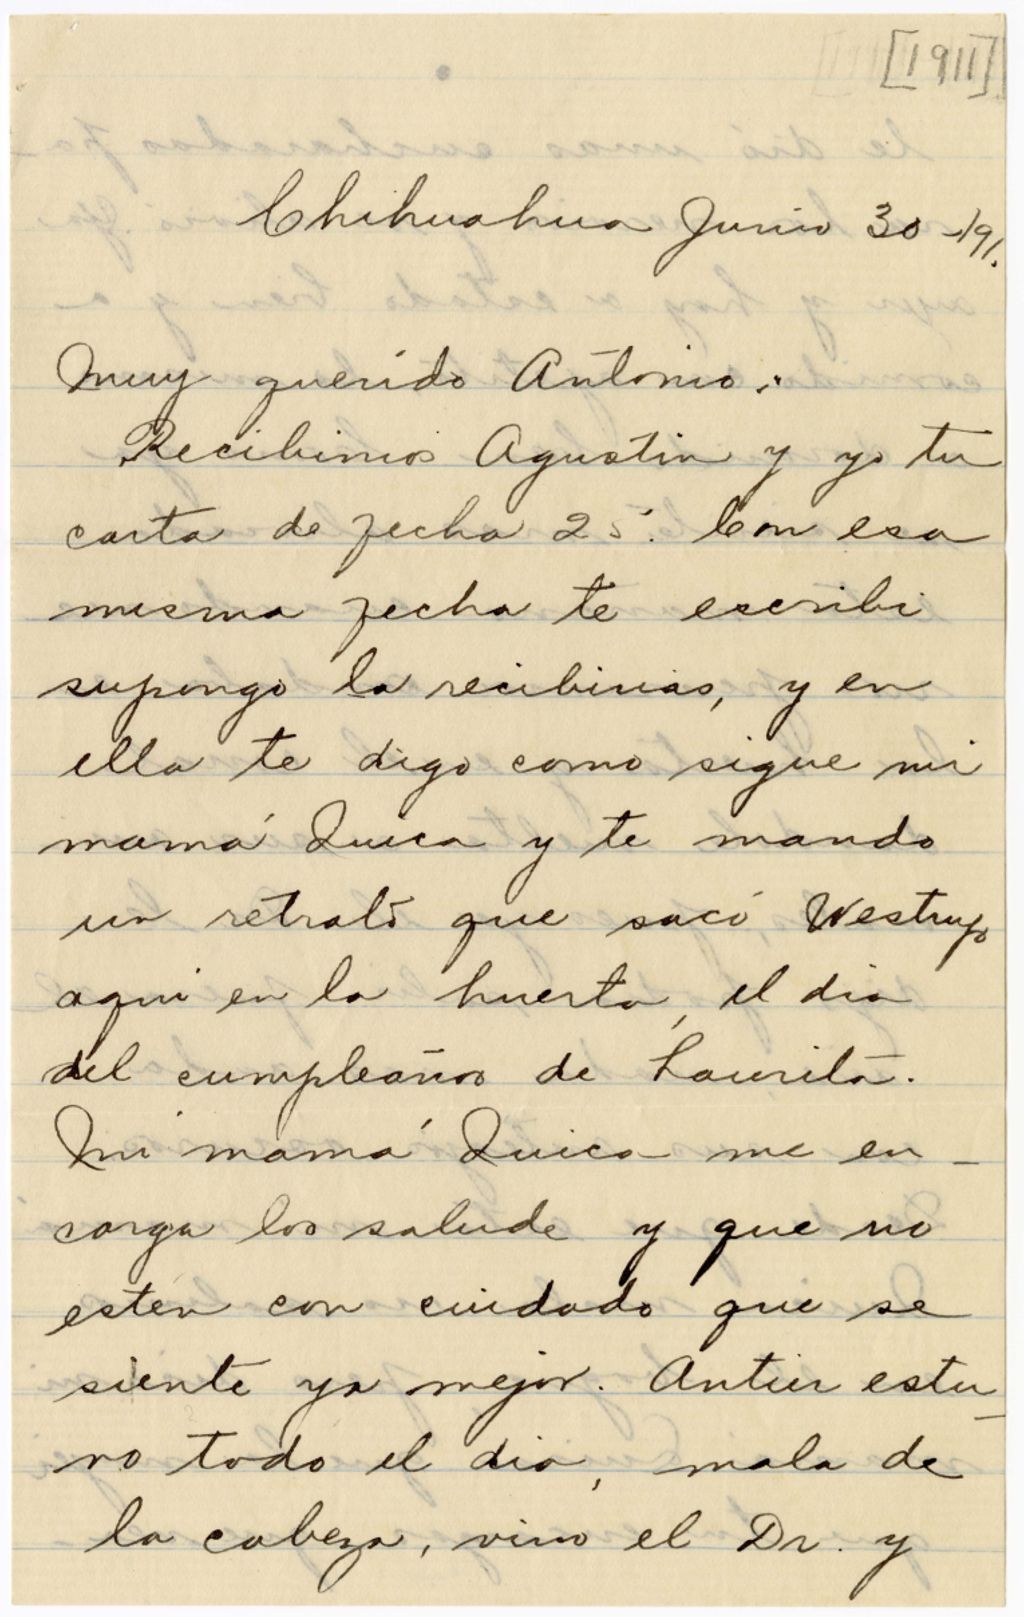 [1911]
Chihuahua Junio 30-191.
Muy querido Antonio:
Recibimos Agustin y yo tu
carta de fecha 25. Con esa
misma fecha te escribi
supongo la recibirias, y en
ella te digo como sigue mi
mamá Quica y te mando
un retrato que sacó Westrup
aqui en la huerta, el dia
del cumpleaños de Laurita.
Mi mamá Quica me en-
carga los salude y que no
esten con cuidado que se
siente ya mejor. Antier estu-
vo todo el dia, mala de
la cabeza, vino el Dr. y